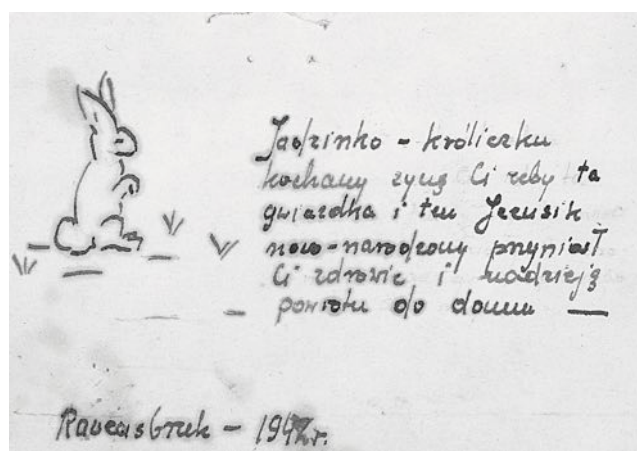 Jadzinko - króliczku
kochany życzę Ci żeby ta
gwiazdka i ten Jezusik
nowo-narodzony przyniósł
Ci zdrowie i nadzieję
- powrotu do domu -
Ravensbruk - 1942r.